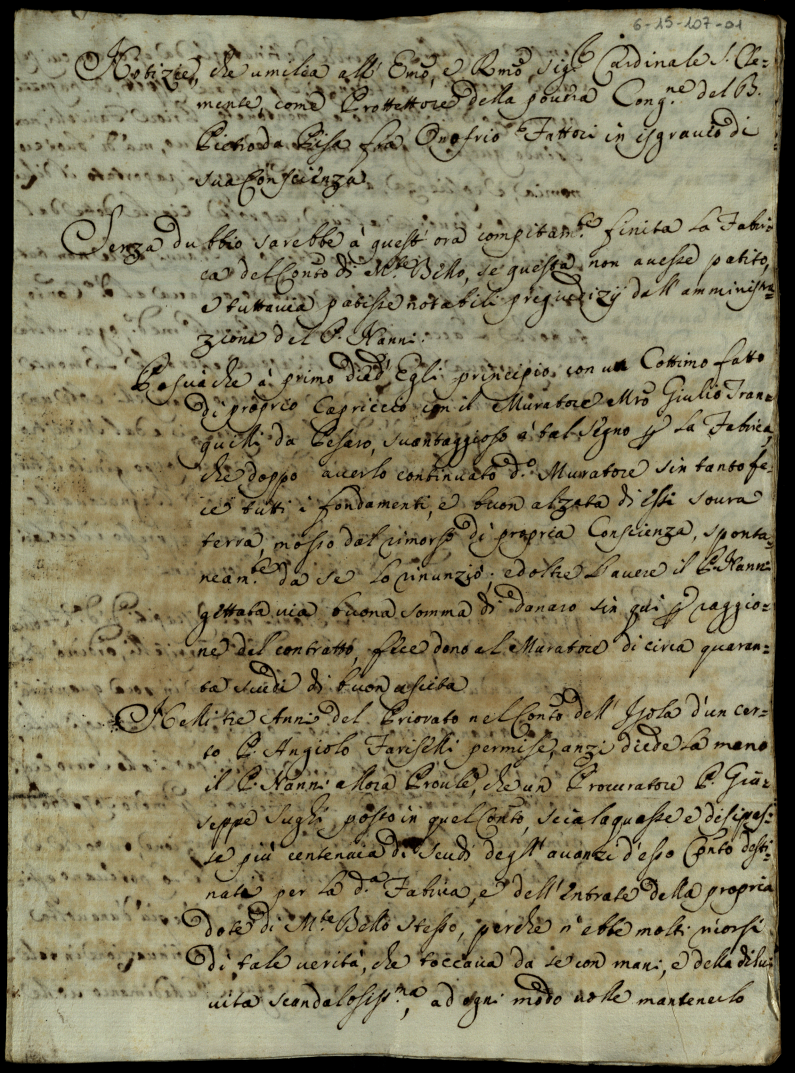 6-15-107-01
Notizie, che umilia all' Emo, e Rmo Sigr Cardinale S. Cle=
mente, come Prottettore della povera Congne del B.
Pietro da Pisa fra Onofrio Fattori in isgravio di
sua Conscienza.
Senza dubbio sarebbe a quest' ora compitamte finita la Fabri=
ca del Conto di Mte Bello, se questa non avesse patito,
e tuttavia patisse notabili pregiudizij dall' amministra=
zione del P. Nanni.
Posciache à primo die Egli principio con un Cottimo fatto
di proprio Capriccio con il Muratore Mro Giulio Tran=
quilli da Pesaro, svantaggioso a tal segno p la Fabrica,
che doppo averlo continuato do Muratore sin tanto fe=
ce tutti i fondamenti, e buon alzata di essi sovra
terra, mosso dal rimorso di propria Conscienza, sponta=
neamte da se lo rinunziò: ed oltre l'avere il P. Nanni
gettata via buona somma di danaro sin qui p raggio=
ne del contratto, fece dono al Muratore di circa quaran=
ta scudi di buon uscita.
Nelli tre Anni del Priorato nel Conto dell' Isola d'un cer=
to P. Angiolo Fariselli permise, anzi diede la mano
il P. Nanni allora Proule, che un Procuratore P. Giu=
seppe Sughi posto in quel Conto, scialaquasse e disipas=
se più centenaia di Scudi degl' avanzi d'esso Conto desti=
nati per la da Fabrica, e dell' Entrate della propria
dote di Mte Bello stesso, perche n' ebbe molti ricorsi
di tale verità, che toccava da se con mani, e della di lui
vita scandalosissma, ad ogni modo volle mantenerlo